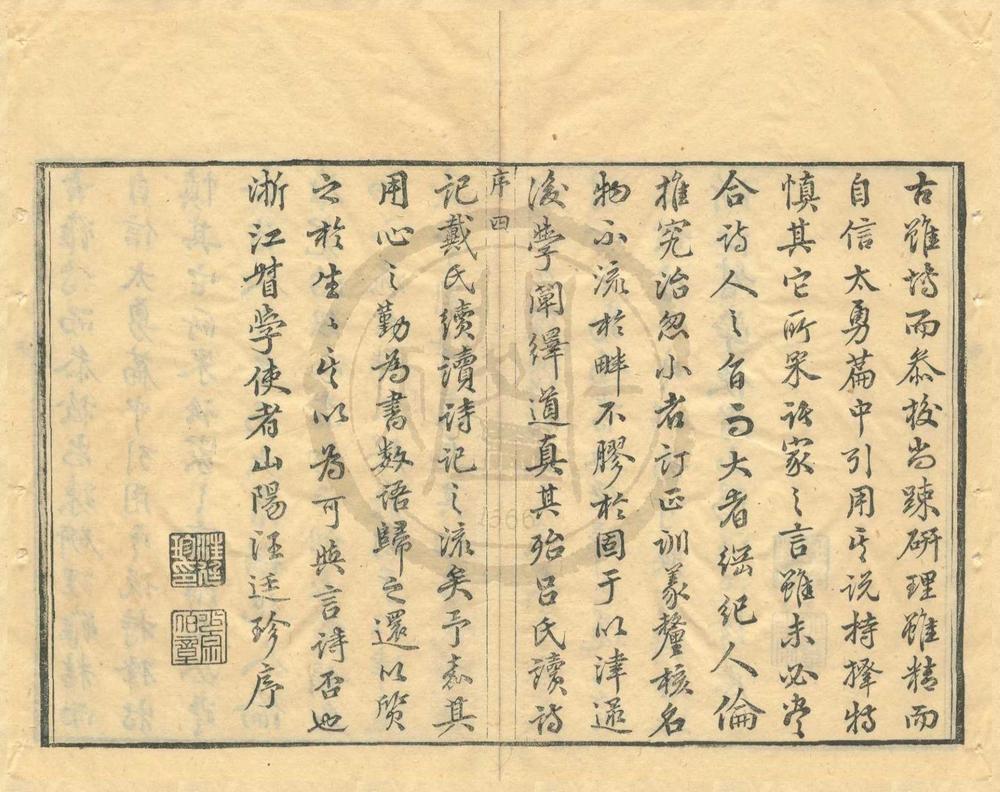 古雖博而參校尚踈研理雖精而
自信太勇篇中引用其说持擇特
慎其它所采諸家之言雖未必盡
合詩人之旨而大者綱紀人倫
推究治忽小者訂正訓義釐核名
物不流於畔不膠於固于以津逮
後學闡繹道真其殆吕氏讀詩
序四
記戴氏續讀詩記之流矣予嘉其
用心之勤為書数语歸之還以质
之於生〻其以為可與言詩否也
浙江督学使者山陽汪廷珍序
汪廷珍印
1366